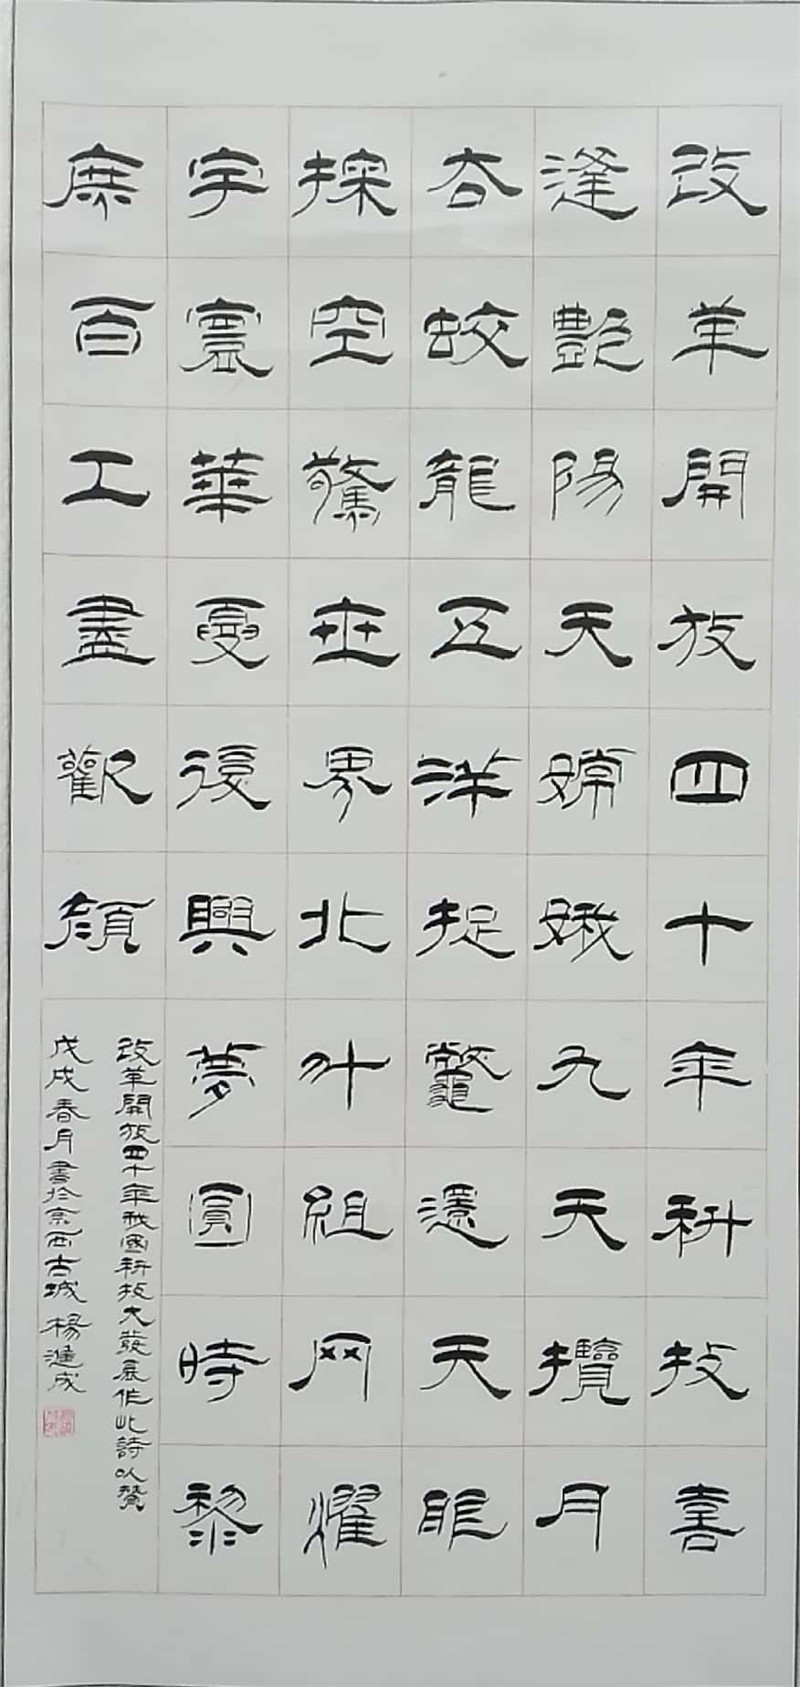 改革開放四十年科技喜
逢艷陽天嫦娥九天攬月
杏蛟龍五洋捉鱉還天眼
探空驚世界北斗組网耀
宇寰華夏復興夢圓時黎
庶百工盡歡顏
改革開放四十年我國科技大發展作此詩以贊
戊戌春月書於京西古城楊進成